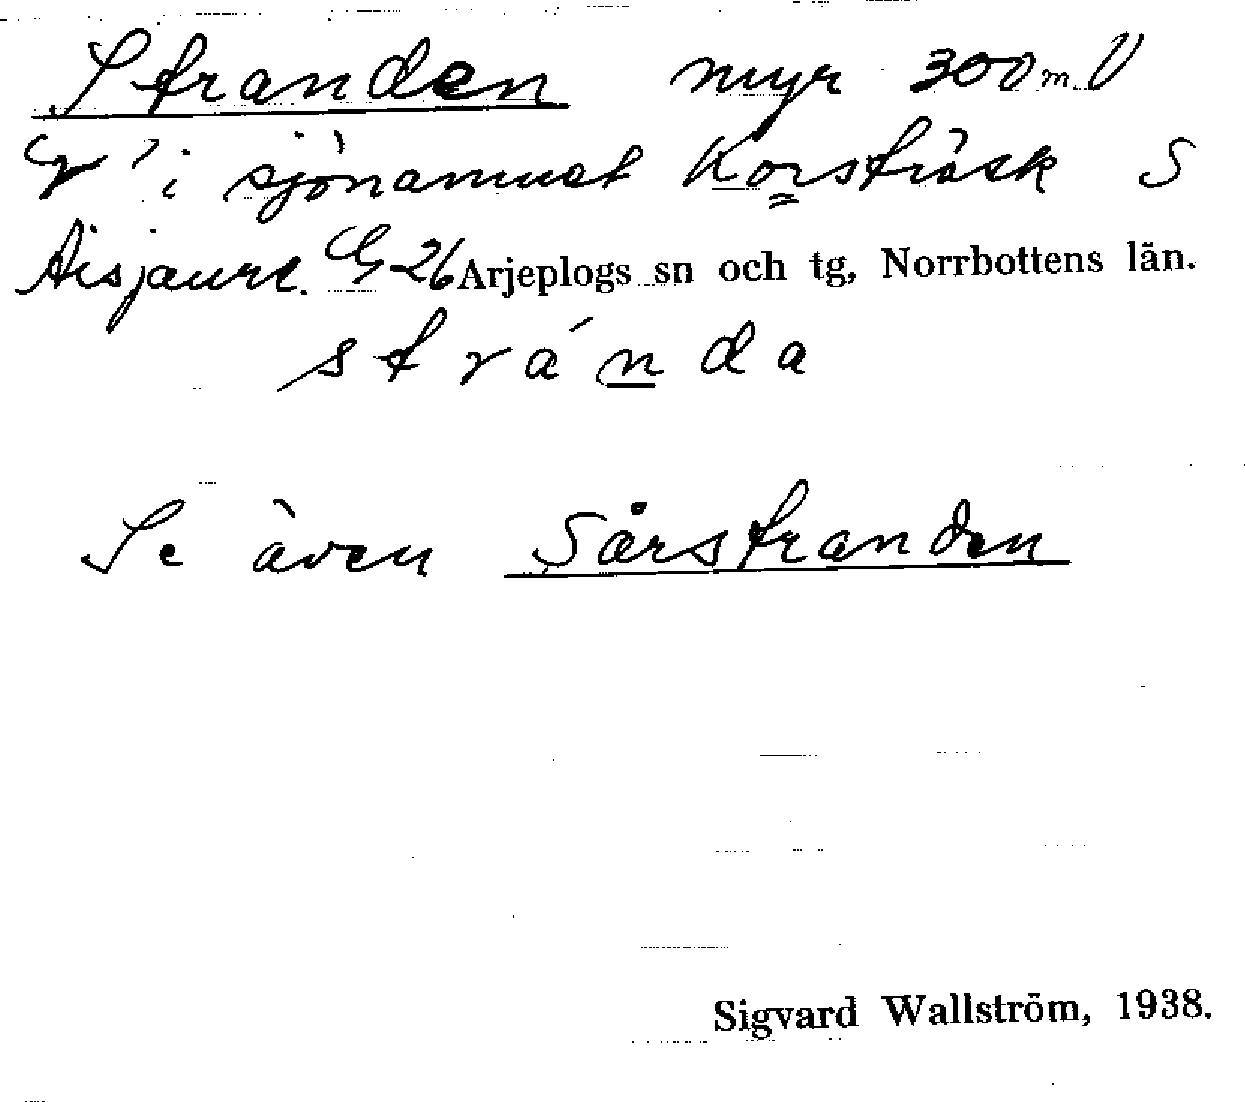 Stranden myr 300 m V
"r" i sjönamnet Korsträsk S
Aisjaure. G 26 Arjeplogs sn och tg, Norrbottens län.
stránda
Se även Sårstranden
Sigvard Wallström, 1938.